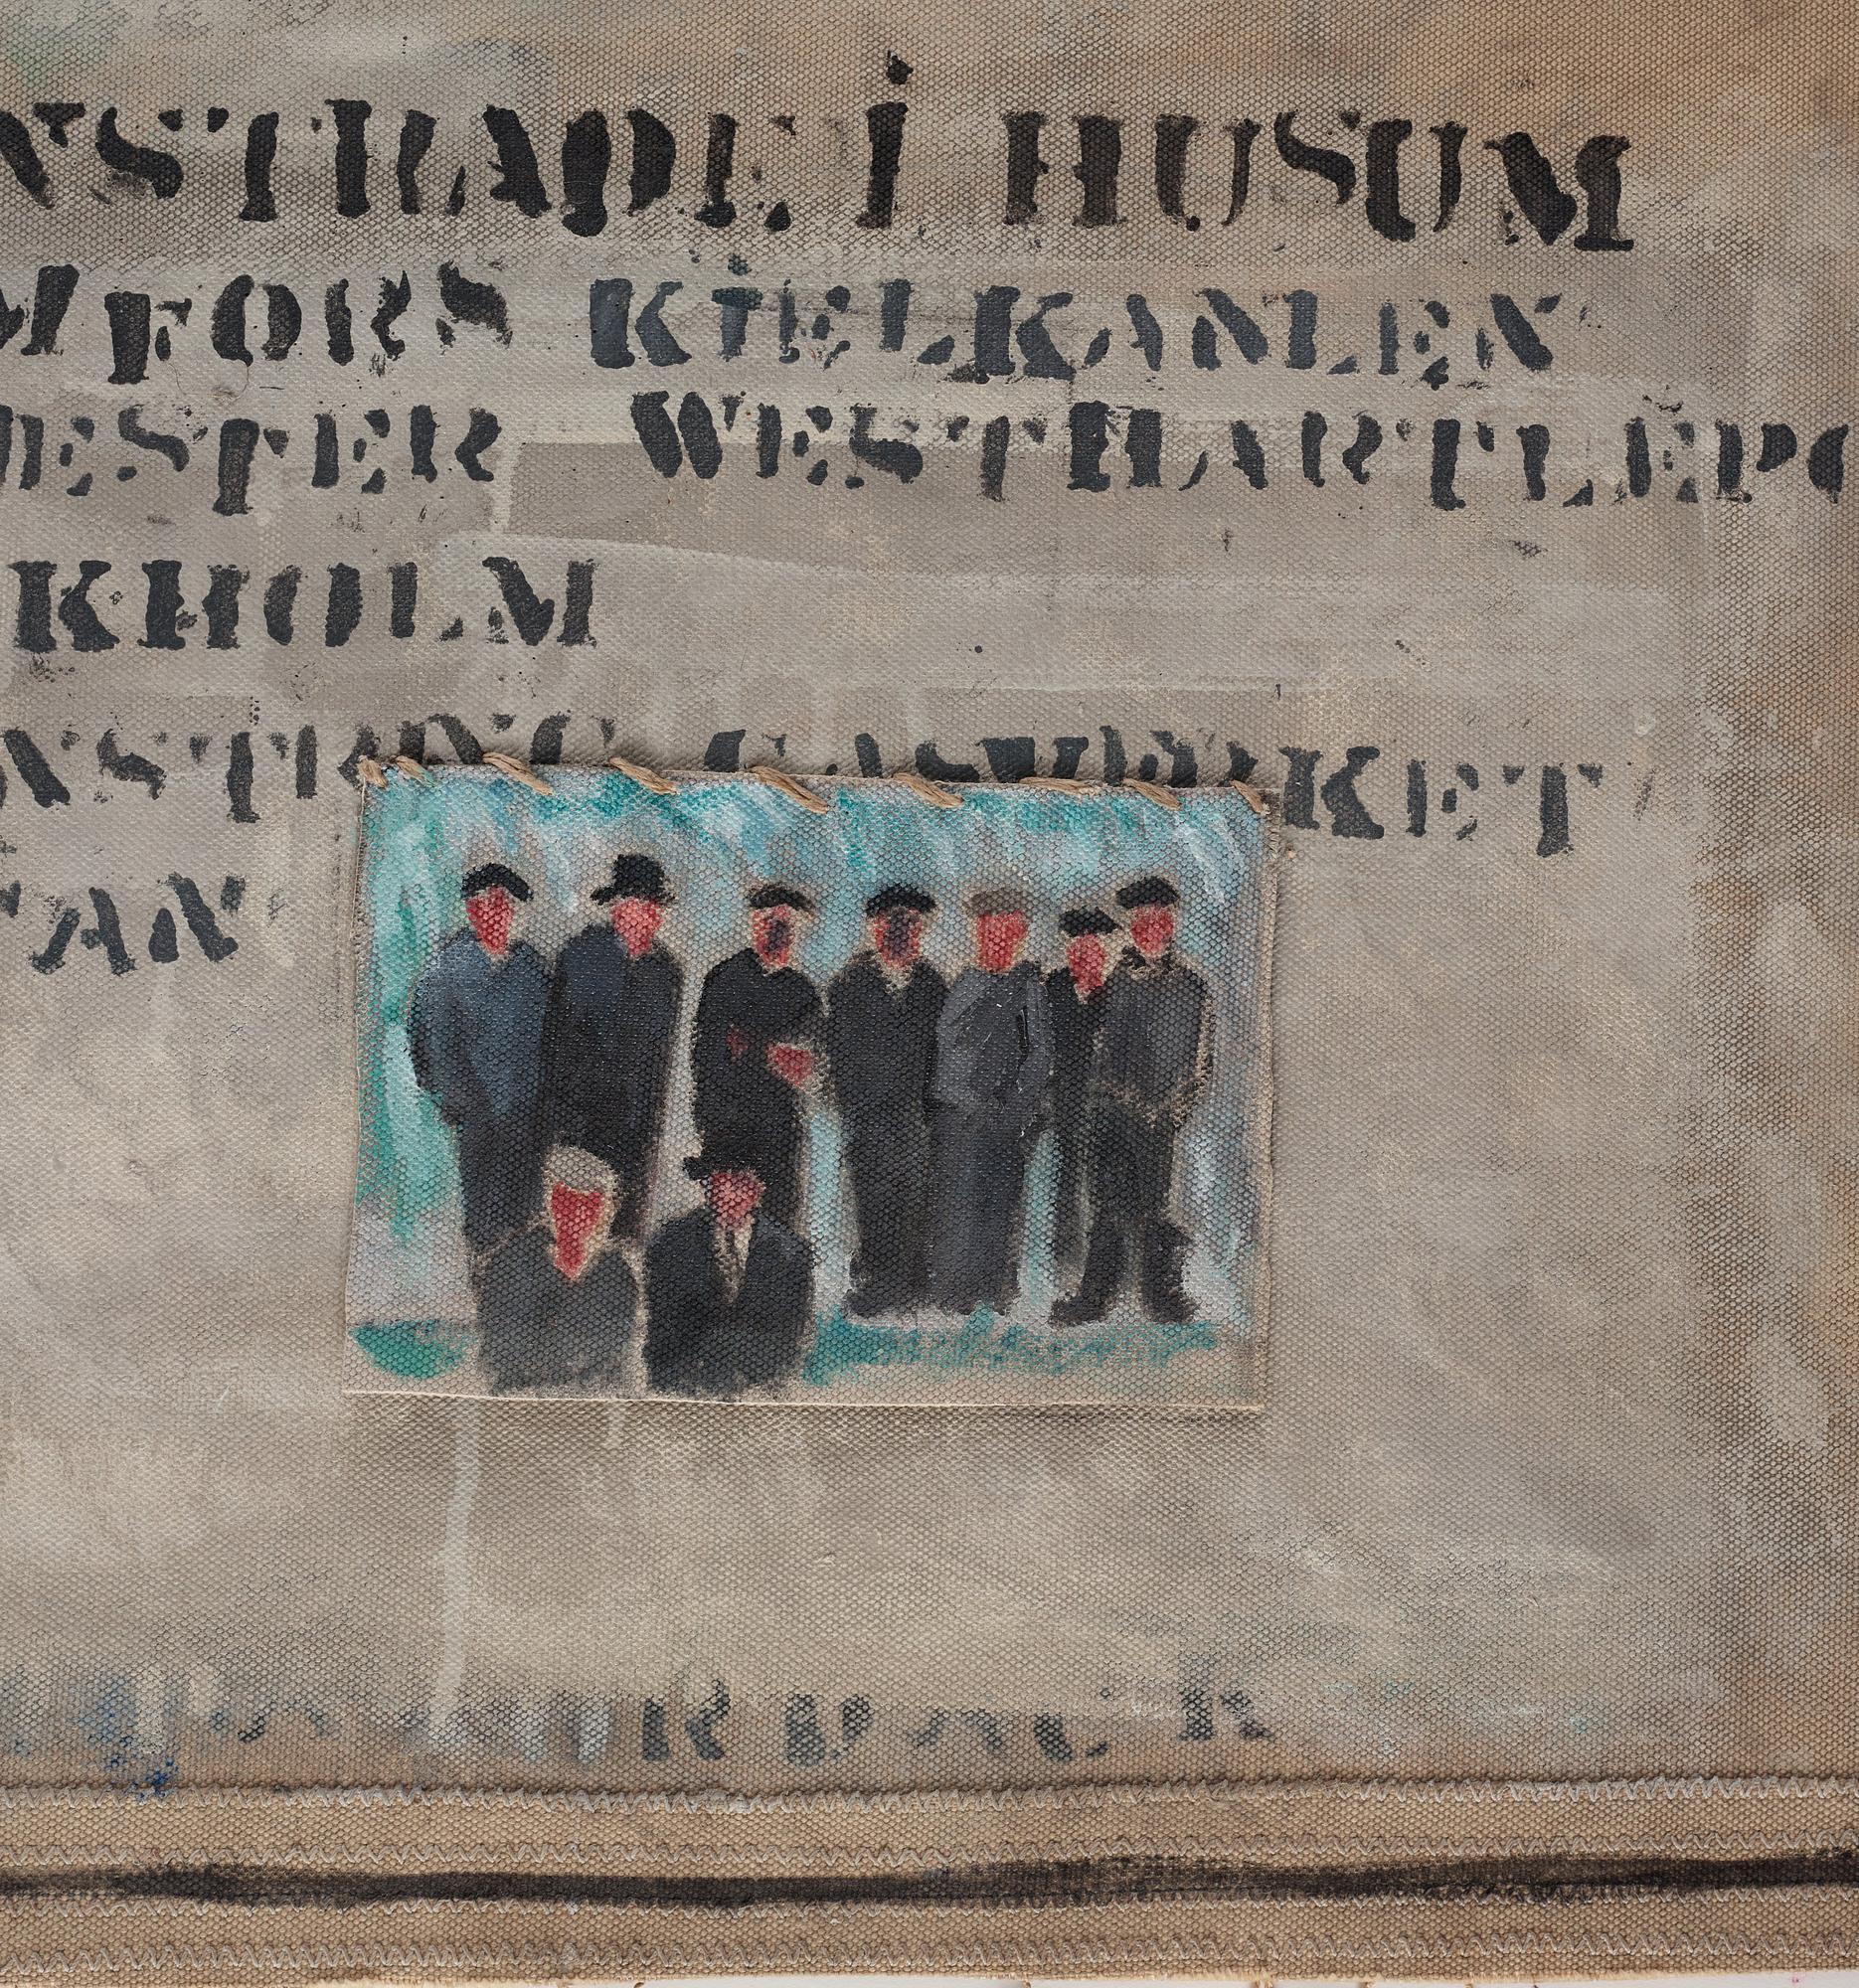 NSTRADE i HUSUM
MFORS KIELKANLEN
ESTER WESTHARTLEPO
KHOLM
NSTRING GASVERKET
TAN